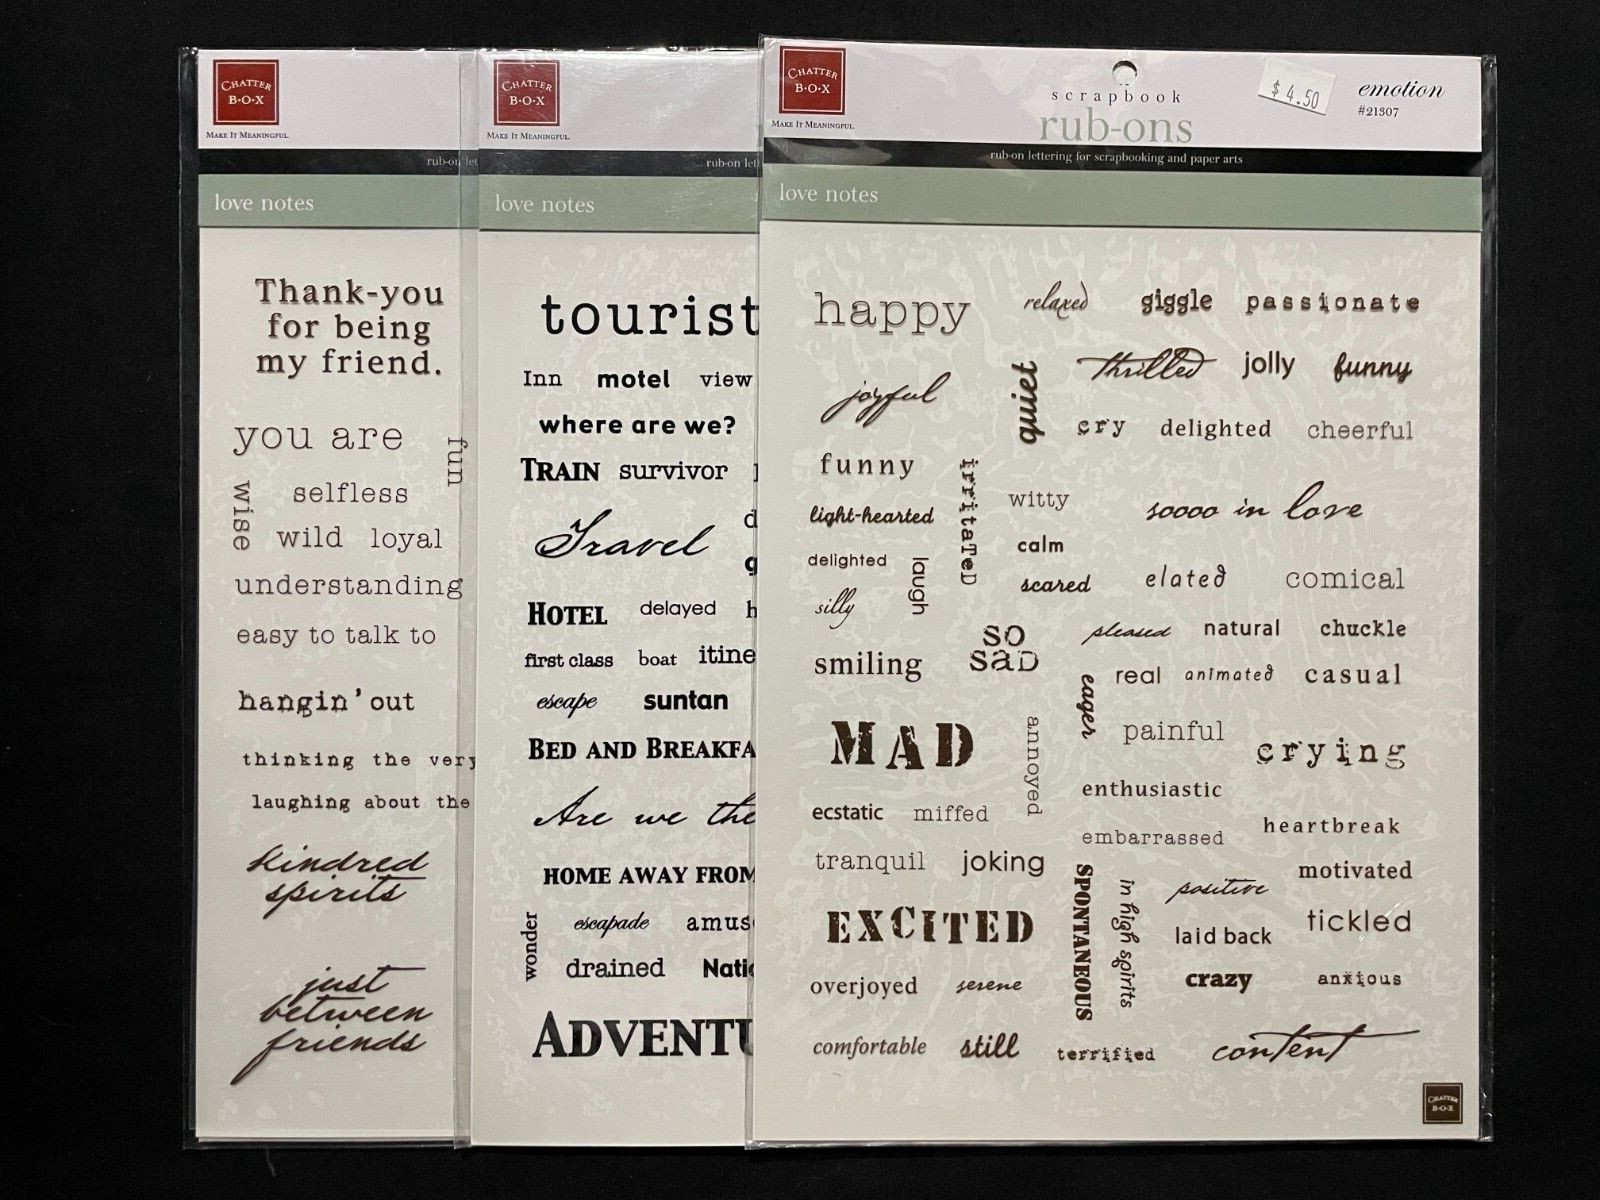 CHATTER
B·O·X
MAKE IT MEANINGFUL.
love notes
Thank-you
for being
my friend.
you are
fun
wise
selfless
wild loyal
understanding
easy to talk to
hangin' out
thinking the very
laughing about the
kindred
spirits
just
between
friends
CHATTER
B·O·X
MAKE IT MEANINGFUL.
love notes
tourist
Inn motel view
where are we?
TRAIN survivor
Travel
HOTEL delayed
first class boat itine
escape suntan
BED AND BREAKFA
Are we the
HOME AWAY FROM
wonder
escapade amus
drained Natio
ADVENTU
CHATTER
B·O·X
MAKE IT MEANINGFUL.
scrapbook
rub-ons
$ 4.50
emotion
#21307
rub-on lettering for scrapbooking and paper arts
love notes
happy relaxed giggle passionate
joyful quiet thrilled jolly funny
cry delighted cheerful
funny irritaTeD witty soooo in love
light-hearted calm
delighted laugh scared elated comical
silly
so
saD
pleased natural chuckle
smiling eager real animated casual
MAD annoyed painful crying
enthusiastic
ecstatic miffed embarrassed heartbreak
tranquil joking motivated
SPONTANEOUS in high spirits positive
EXCITED laid back tickled
overjoyed serene crazy anxious
comfortable still terrified content
CHATTER
B·O·X